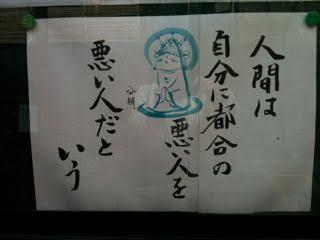 人間は
自分に都合の
悪い人を
悪い人だと
いう